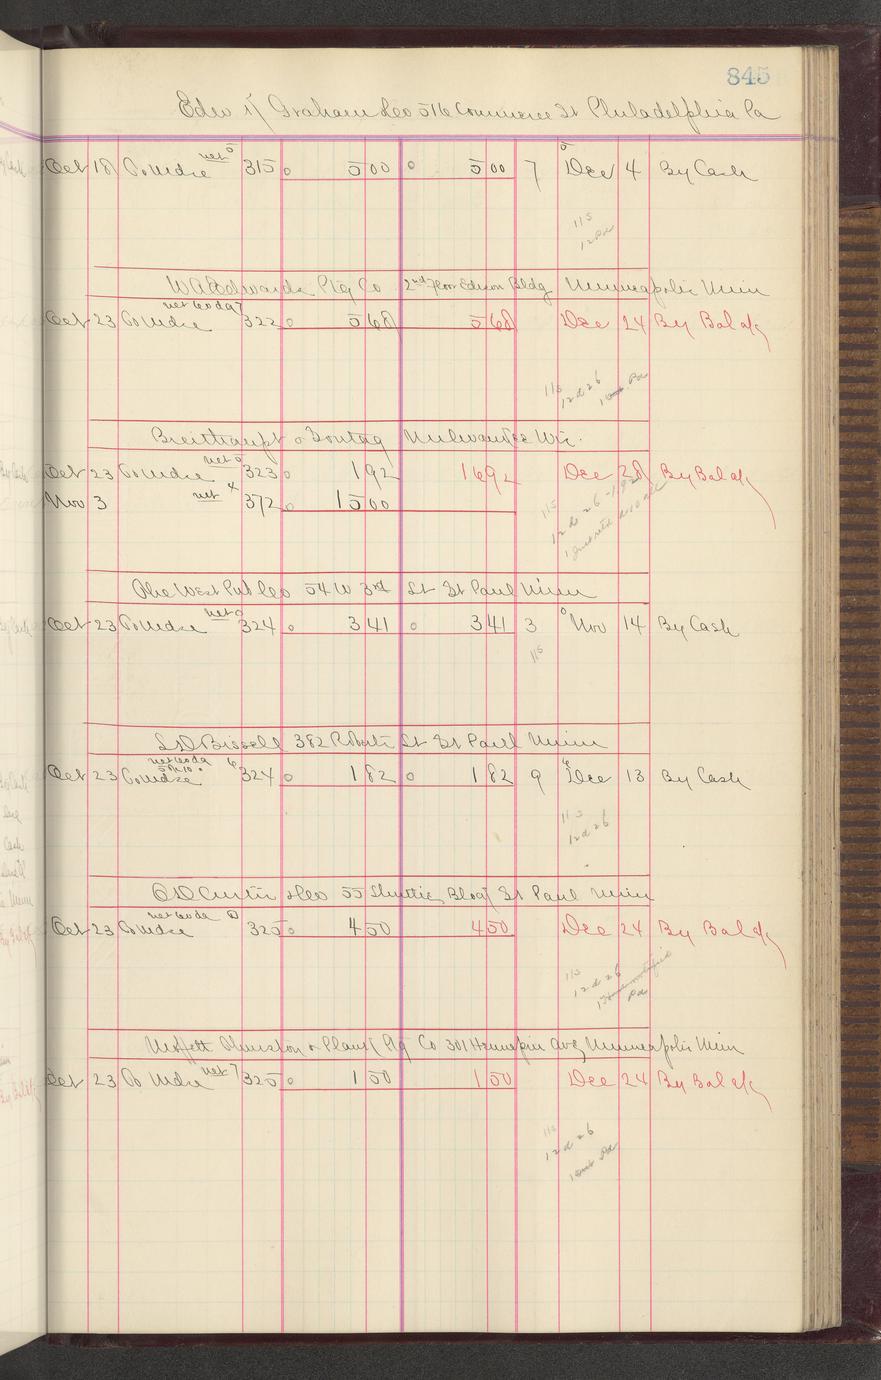 845
Edw Graham &Co 516 Commerce St Philadelphia Pa
net 5
Oct 18 To Mdse 315 5 00 5 00 7 Dec 4 By Cash
115
W A Edwards Ptg Co 2nd Floor Edison Bldg Minneapolis Minn
net 60 da 7
Oct 23 To Mdse 322 5 68 5 68 Dec 24 By Bal a/c
115
12 d 26
Pd
Breitkaupt & Sontag Milwaukee Wis.
net 5
Oct 23 To Mdse 323 1 92 16 92 Dec 28 By Bal a/c
Nov 3 net 372 15 00
115
12 d 26
The West Pub Co 54 W 3rd St St Paul Minn
net
Oct 23 To Mdse 324 3 41 3 41 3 Nov 14 By Cash
115
L D Bissell 382 Robert St St Paul Minn
net 60 da
Oct 23 To Mdse 324 1 82 1 82 9 Dec 13 By Cash
115
12 d 26
O D Curtis &Co 55 Bldg St Paul Minn
net 60 da
Oct 23 To Mdse 325 4 50 4 50 Dec 24 By Bal a/c
115
12 d 26
Pd
Moffett Thurston & Plank Ptg Co 301 Hennepin Ave Minneapolis Minn
net 7
Oct 23 To Mdse 325 1 50 1 50 Dec 24 By Bal a/c
115
12 d 26
Pd